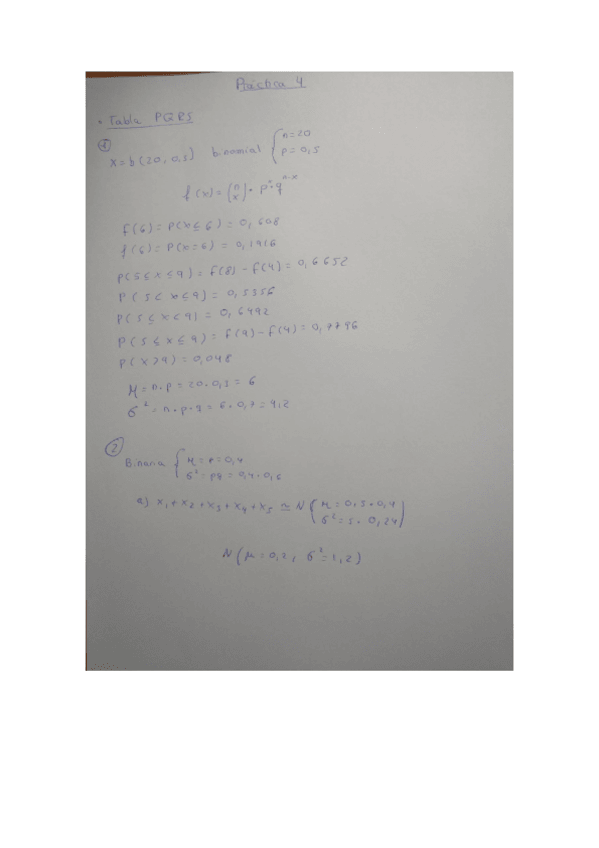 Práctica 4
• Tabla PQRS
①
X = b(20, 0,3) binomial { n=20
p = 0,3
f(x) = (n x) · pˣ · qⁿ⁻ˣ
F(6) = P(x ≤ 6) = 0,608
f(6) = P(x=6) = 0,1916
P(5 ≤ x ≤ 9) = F(8) - F(4) = 0,6652
P(5 < x ≤ 9) = 0,5356
P(5 ≤ x < 9) = 0,6492
P(5 ≤ x ≤ 9) = F(9) - F(4) = 0,7796
P(x > 9) = 0,048
μ = n · p = 20 · 0,3 = 6
σ² = n · p · q = 6 · 0,7 = 4,2
②
Binaria { μ = p = 0,4
σ² = pq = 0,4 · 0,6
a) x₁ + x₂ + x₃ + x₄ + x₅ ≃ N ( μ = 0,5 · 0,4
σ² = 5 · 0,24 )
N(μ = 0,2, σ² = 1,2)